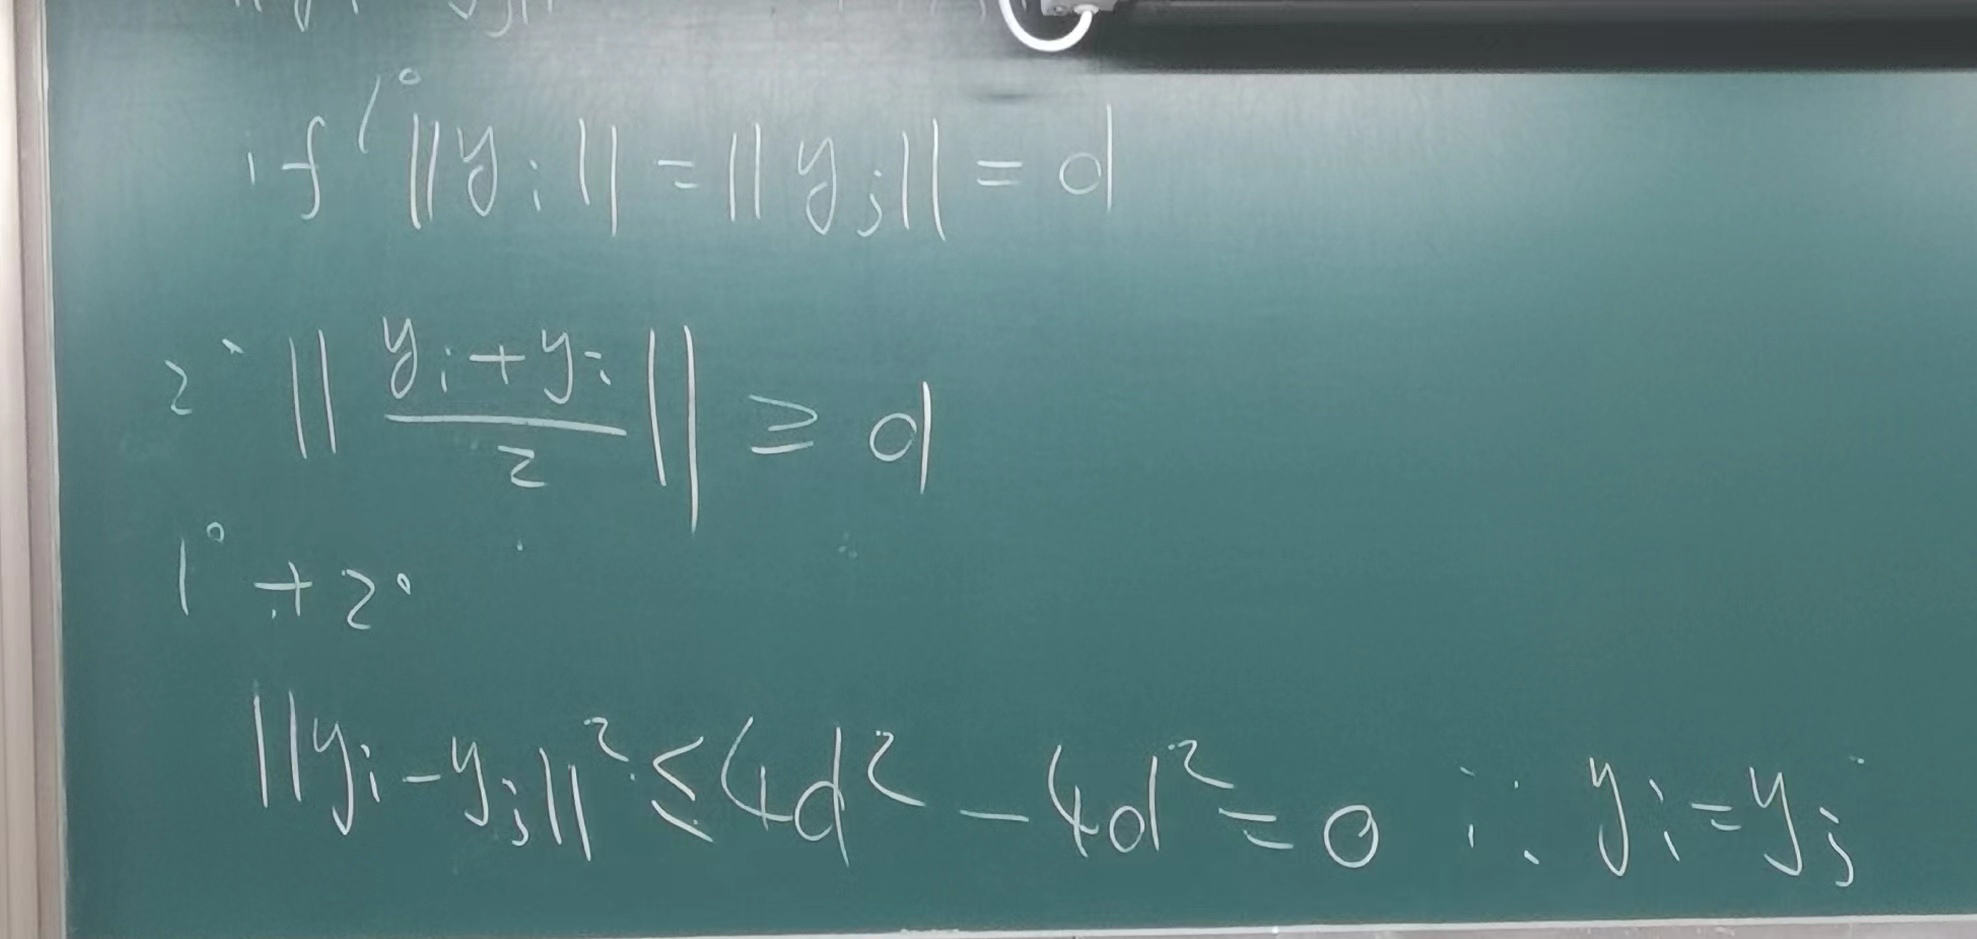 if 1° ||yi|| = ||yj|| = d
2° ||(yi + yi)/2|| ≥ d
1° + 2°
||yi - yj||² ≤ 4d² - 4d² = 0 ∴ yi = yj